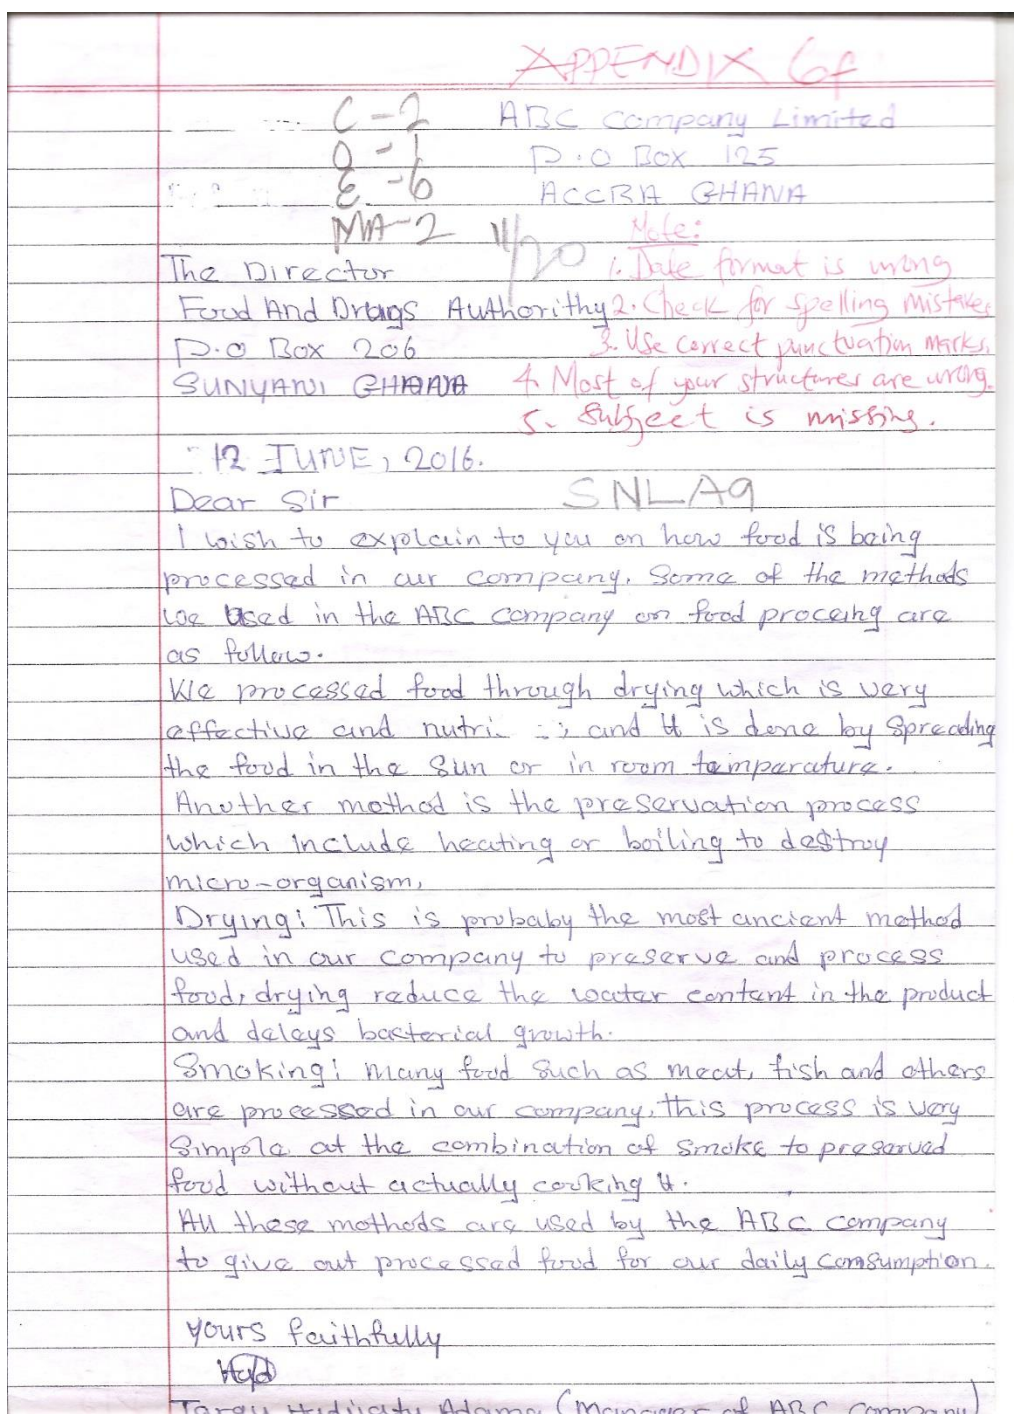 APPENDIX 6f
C-2 ABC Company Limited
O-1 P.O Box 125
E-6 ACCRA GHANA
MA-2 11/20 Note:
The Director 1. Date format is wrong
Food And Drugs Authorithy 2. Check for spelling mistakes
P.O Box 206 3. Use correct punctuation marks.
SUNYANI GHANA 4. Most of your structures are wrong.
5. Subject is missing.
12 JUNE, 2016.
Dear Sir SNLA9
I wish to explain to you on how food is being
processed in our company. Some of the methods
we used in the ABC company on food proceing are
as follow.
We processed food through drying which is very
effective and nutri and it is done by spreading
the food in the sun or in room temparature.
Another method is the preservation process
which include heating or boiling to destroy
micro-organism,
Drying: This is probaby the most ancient method
used in our company to preserve and process
food, drying reduce the water content in the product
and delays bacterial growth.
Smoking: many food such as meat, fish and others
are processed in our company. this process is very
simple at the combination of smoke to preserved
food without actually cooking it.
All these methods are used by the ABC company
to give out processed food for our daily consumption.
yours faithfully
Adama (manager of ABC company)